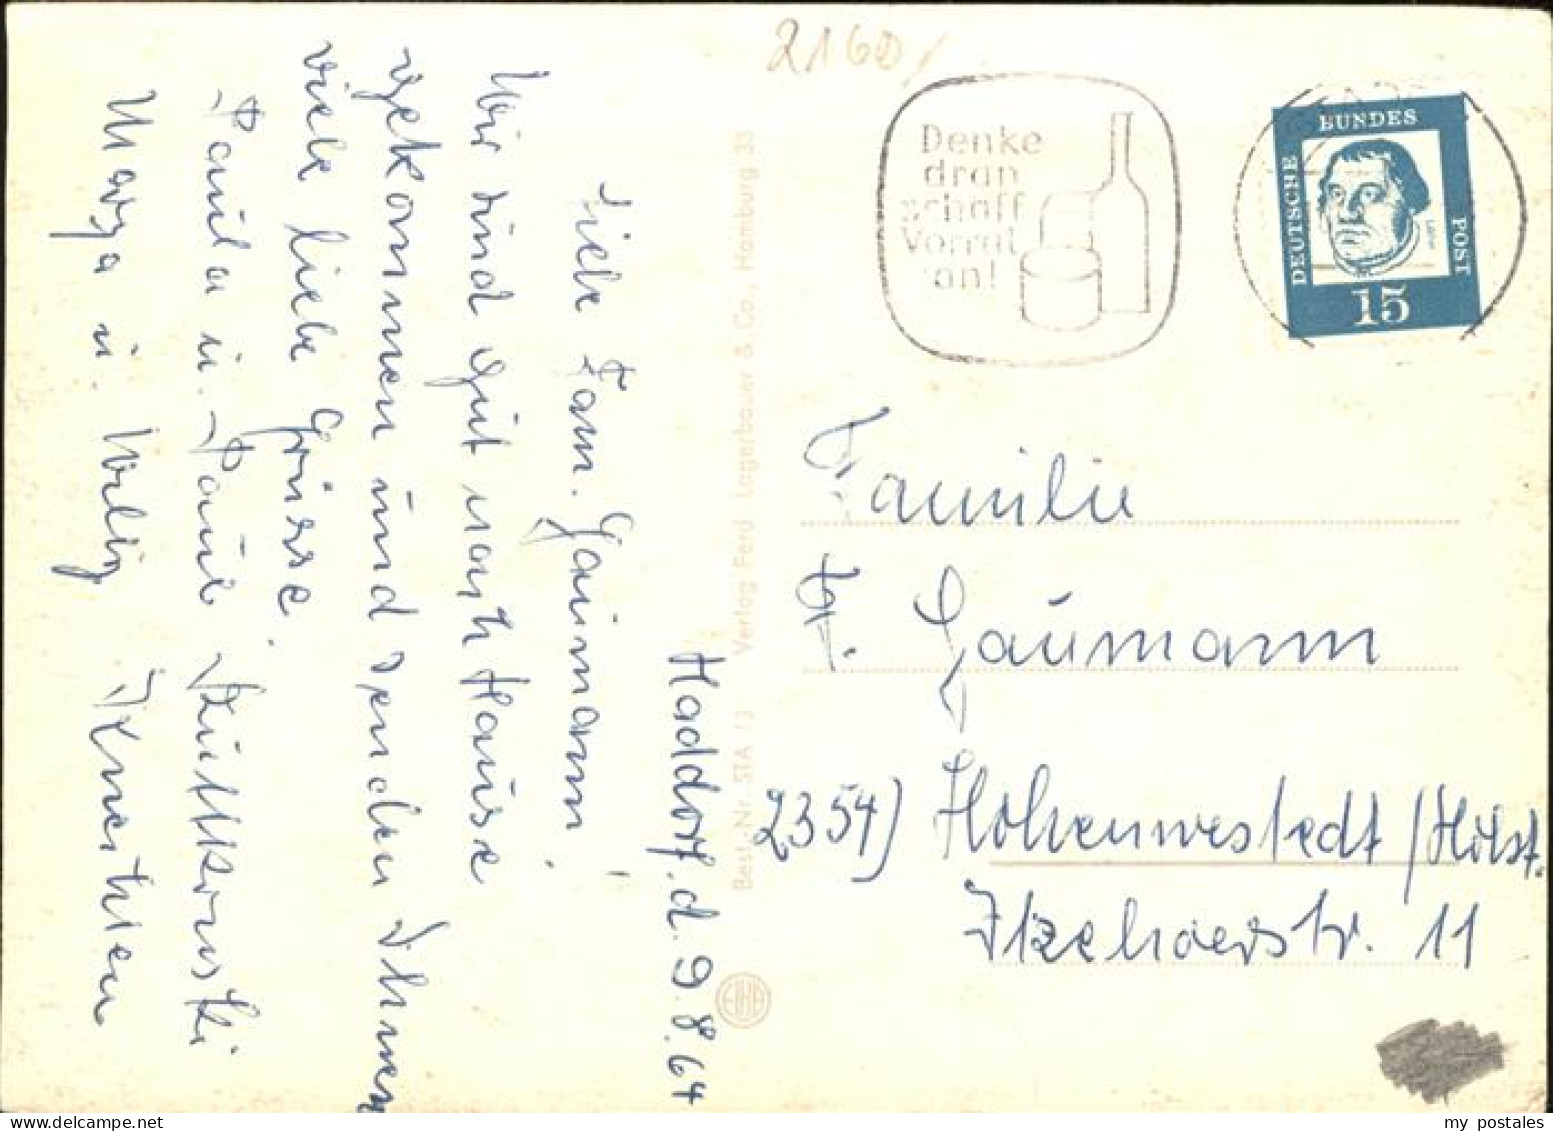 2160
Denke
dran
schaff
Vorrat
an!
DEUTSCHE
BUNDES
POST
15
Haddorf. d. 9.8.64
Liebe Fam. Gaumann!
Wir sind gut nach Hause
gekommen und senden Ihnen
viele liebe Grüsse.
Paula u. Paul
Marga u. Willy
Familie
Gaumann
2354) Hohenwestedt / Holst.
Itzehoerstr. 11
Best.-Nr. STA 13 Verlag Ferd. Lagerbauer & Co., Hamburg 33
my postales